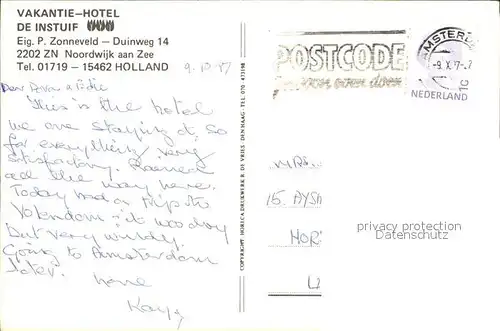 VAKANTIE–HOTEL
DE INSTUIF
Eig. P. Zonneveld – Duinweg 14
2202 ZN Noordwijk aan Zee
Tel. 01719 – 15462 HOLLAND
9.10.87
Dear &
This is the hotel
we are staying at, so
far everything very
satisfactory. Rained
all the way here.
Today had a trip to
Volendam it was dry
but very windy.
Going to Amsterdam
later.
Love
Kay
COPYRIGHT: HORECA DRUKWERK R. DE VRIES - DEN HAAG - TEL. 070
POSTCODE
AMSTERD
-9.X.
NEDERLAND
MRS.
15. AYSH
HOR
privacy protection
Datenschutz
L